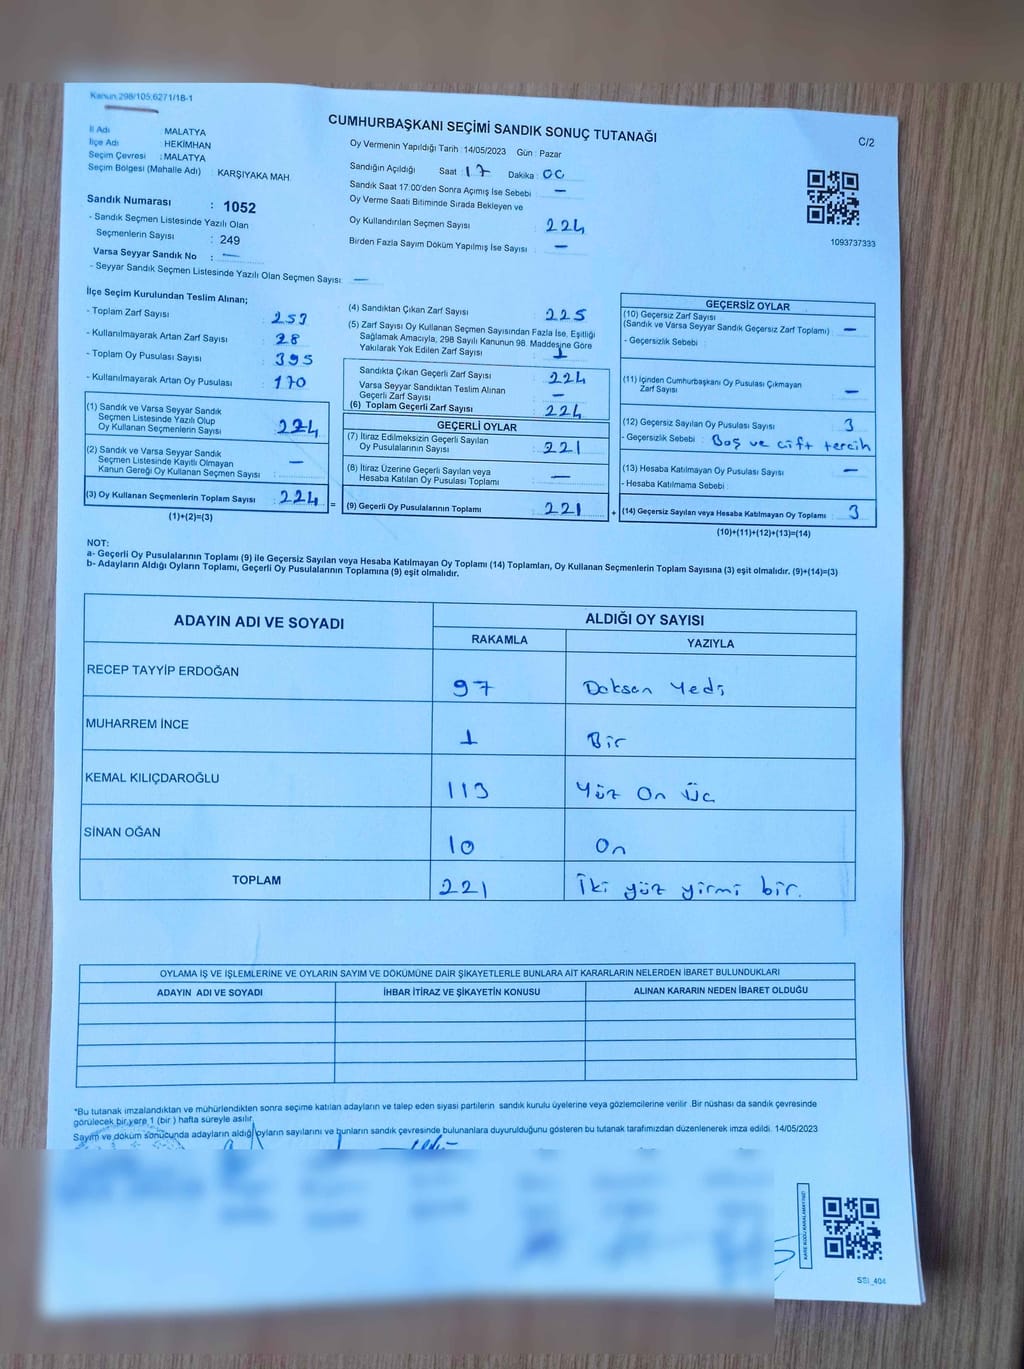 Kanun 298/105;6271/18-1
CUMHURBAŞKANI SEÇİMİ SANDIK SONUÇ TUTANAĞI
C/2
İl Adı MALATYA
İlçe Adı HEKİMHAN
Seçim Çevresi : MALATYA
Seçim Bölgesi (Mahalle Adı) : KARŞIYAKA MAH.
Oy Vermenin Yapıldığı Tarih : 14/05/2023 Gün : Pazar
Sandığın Açıldığı Saat : 17 Dakika : 00
Sandık Saat 17.00'den Sonra Açımış İse Sebebi : —
Oy Verme Saati Bitiminde Sırada Bekleyen ve
Oy Kullandırılan Seçmen Sayısı : 224
Birden Fazla Sayım Döküm Yapılmış İse Sayısı : —
1093737333
Sandık Numarası : 1052
- Sandık Seçmen Listesinde Yazılı Olan
Seçmenlerin Sayısı : 249
Varsa Seyyar Sandık No : —
- Seyyar Sandık Seçmen Listesinde Yazılı Olan Seçmen Sayısı: —
İlçe Seçim Kurulundan Teslim Alınan;
- Toplam Zarf Sayısı : 253
- Kullanılmayarak Artan Zarf Sayısı : 28
- Toplam Oy Pusulası Sayısı : 395
- Kullanılmayarak Artan Oy Pusulası : 170
(1) Sandık ve Varsa Seyyar Sandık
Seçmen Listesinde Yazılı Olup
Oy Kullanan Seçmenlerin Sayısı : 224
(2) Sandık ve Varsa Seyyar Sandık
Seçmen Listesinde Kayıtlı Olmayan
Kanun Gereği Oy Kullanan Seçmen Sayısı : —
(3) Oy Kullanan Seçmenlerin Toplam Sayısı : 224 =
(1)+(2)=(3)
(4) Sandıktan Çıkan Zarf Sayısı : 225
(5) Zarf Sayısı Oy Kullanan Seçmen Sayısından Fazla İse, Eşitliği
Sağlamak Amacıyla, 298 Sayılı Kanunun 98. Maddesine Göre
Yakılarak Yok Edilen Zarf Sayısı : 1
Sandıkta Çıkan Geçerli Zarf Sayısı : 224
Varsa Seyyar Sandıktan Teslim Alınan
Geçerli Zarf Sayısı : —
(6) Toplam Geçerli Zarf Sayısı : 224
GEÇERLİ OYLAR
(7) İtiraz Edilmeksizin Geçerli Sayılan
Oy Pusulalarının Sayısı : 221
(8) İtiraz Üzerine Geçerli Sayılan veya
Hesaba Katılan Oy Pusulası Toplamı : —
(9) Geçerli Oy Pusulalarının Toplamı : 221 +
GEÇERSİZ OYLAR
(10) Geçersiz Zarf Sayısı
(Sandık ve Varsa Seyyar Sandık Geçersiz Zarf Toplamı) : —
- Geçersizlik Sebebi :
(11) İçinden Cumhurbaşkanı Oy Pusulası Çıkmayan
Zarf Sayısı : —
(12) Geçersiz Sayılan Oy Pusulası Sayısı : 3
- Geçersizlik Sebebi : Boş ve çift tercih
(13) Hesaba Katılmayan Oy Pusulası Sayısı : —
- Hesaba Katılmama Sebebi :
(14) Geçersiz Sayılan veya Hesaba Katılmayan Oy Toplamı : 3
(10)+(11)+(12)+(13)=(14)
NOT:
a- Geçerli Oy Pusulalarının Toplamı (9) ile Geçersiz Sayılan veya Hesaba Katılmayan Oy Toplamı (14) Toplamları, Oy Kullanan Seçmenlerin Toplam Sayısına (3) eşit olmalıdır. (9)+(14)=(3)
b- Adayların Aldığı Oyların Toplamı, Geçerli Oy Pusulalarının Toplamına (9) eşit olmalıdır.
ADAYIN ADI VE SOYADI ALDIĞI OY SAYISI
RAKAMLA YAZIYLA
RECEP TAYYİP ERDOĞAN 97 Doksan Yedi
MUHARREM İNCE 1 Bir
KEMAL KILIÇDAROĞLU 113 Yüz On Üç
SİNAN OĞAN 10 On
TOPLAM 221 İki yüz yirmi bir.
OYLAMA İŞ VE İŞLEMLERİNE VE OYLARIN SAYIM VE DÖKÜMÜNE DAİR ŞİKAYETLERLE BUNLARA AİT KARARLARIN NELERDEN İBARET BULUNDUKLARI
ADAYIN ADI VE SOYADI İHBAR İTİRAZ VE ŞİKAYETİN KONUSU ALINAN KARARIN NEDEN İBARET OLDUĞU
*Bu tutanak imzalandıktan ve mühürlendikten sonra seçime katılan adayların ve talep eden siyasi partilerin sandık kurulu üyelerine veya gözlemcilerine verilir .Bir nüshası da sandık çevresinde
görülecek bir yere 1 (bir ) hafta süreyle asılır.
Sayım ve döküm sonucunda adayların aldığı oyların sayılarını ve bunların sandık çevresinde bulunanlara duyurulduğunu gösteren bu tutanak tarafımızdan düzenlenerek imza edildi. 14/05/2023
KARE KODU KARALAMAYINIZ!
SSI_404